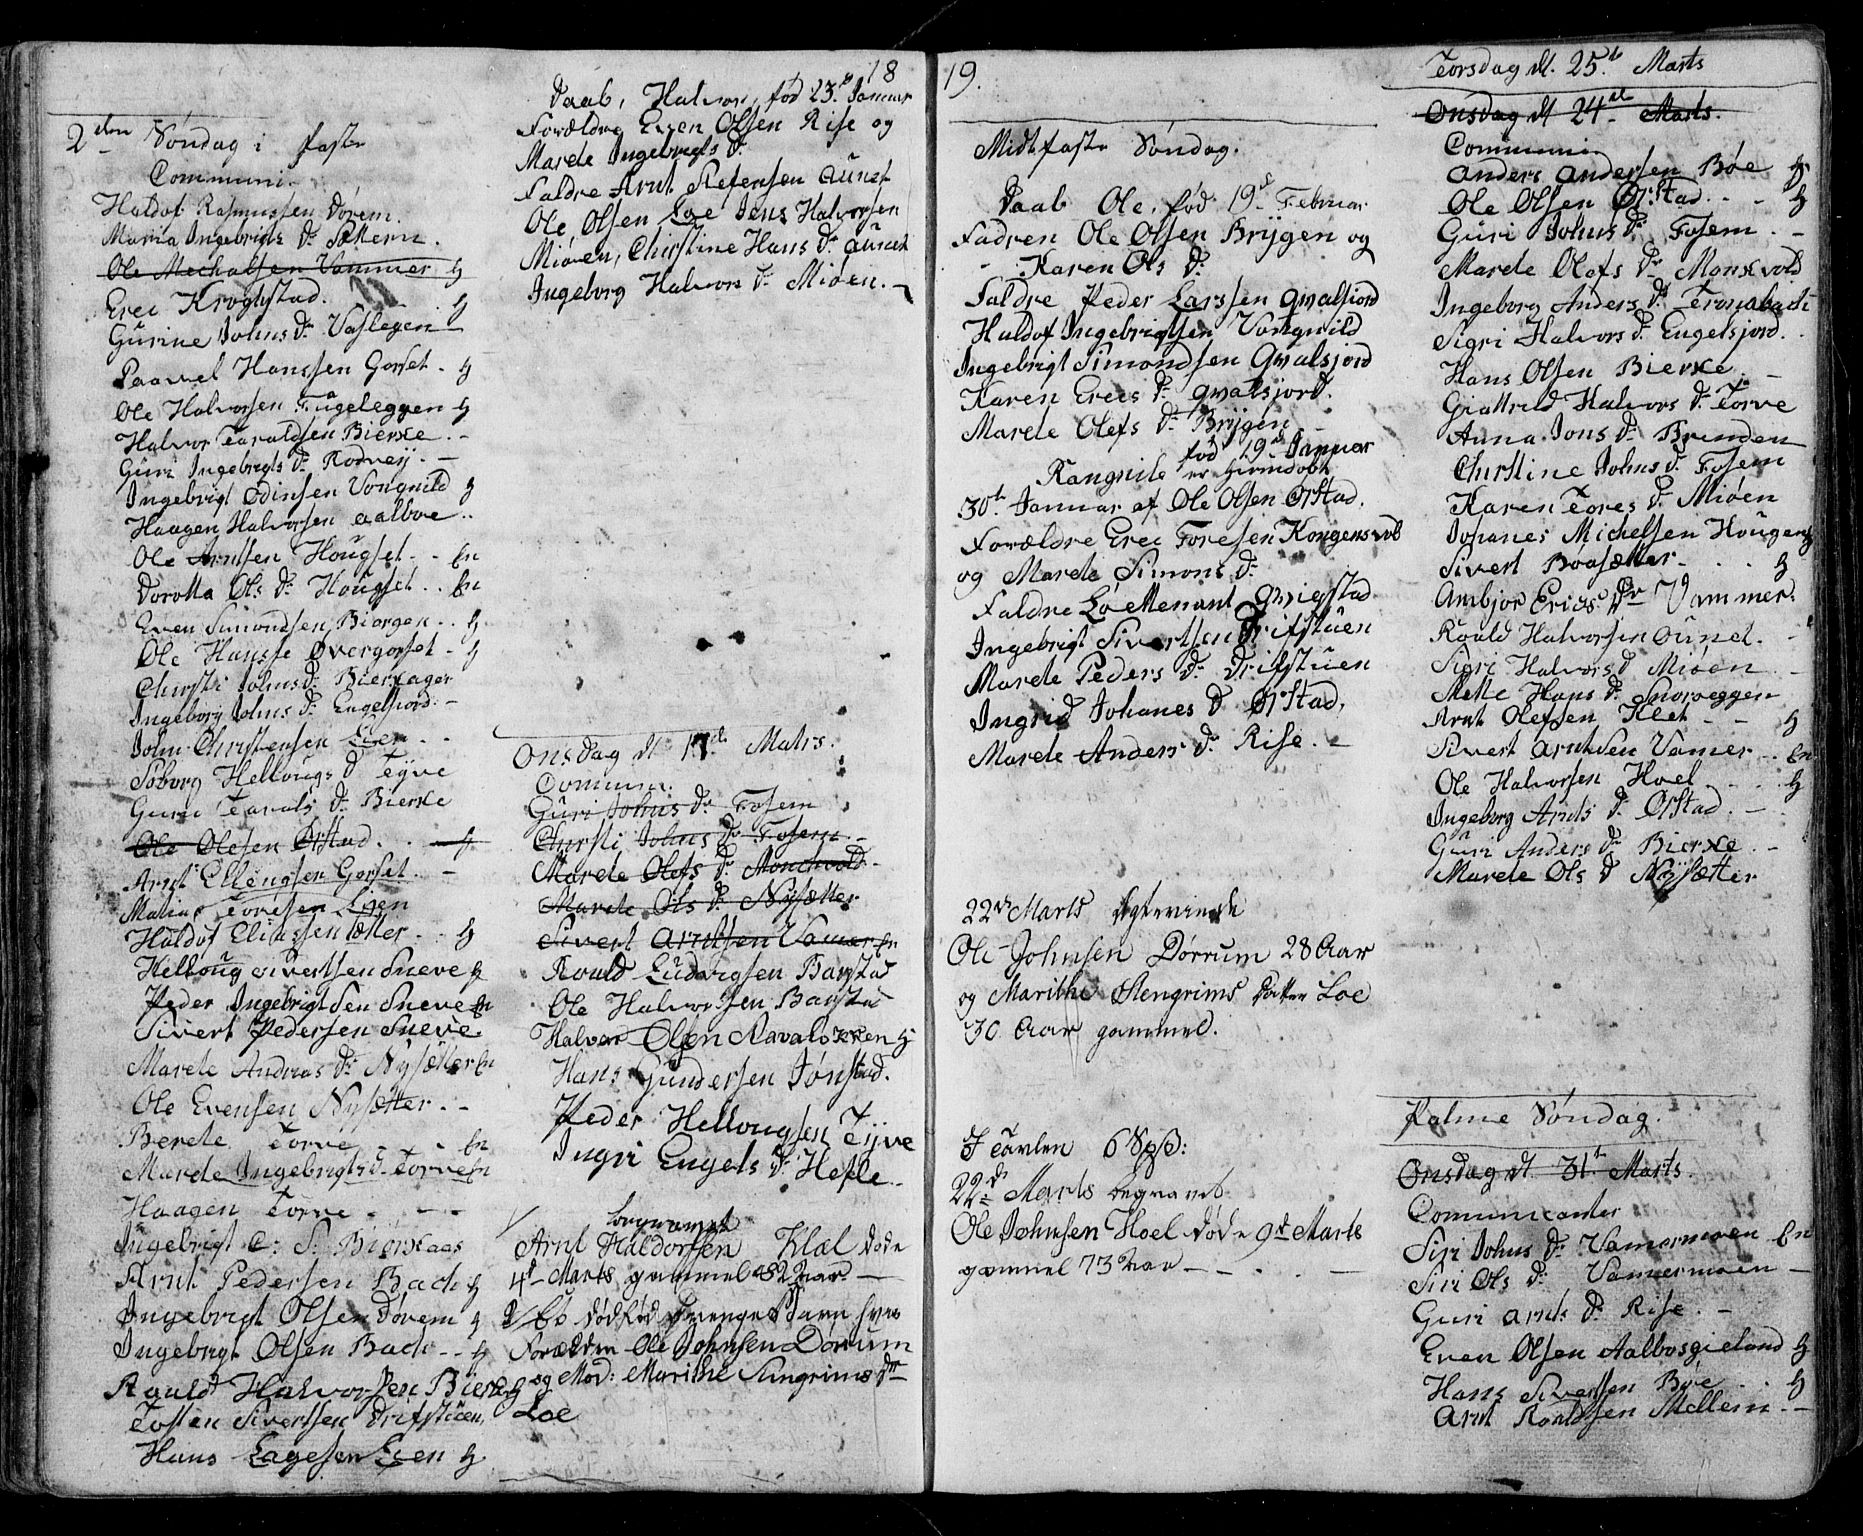 18
2den Søndag i faste
Communi
Haldof Rasmussen Dørem.
Maria Ingebrigts Dr Sætterm.
Ole Mechalsen Vammer
Erec Kroghstad.
Gurine Johns Dr Vaslegen
Paavel Hanssen Gorset.
Ole Halvorsen Fugeleggen
Halvor Taraldsen Bierke.
Guri Ingebrigts Dr Rodveij.
Ingebrigt Odinsen Vongnild
Haagen Halvorsen Aalboe..
Ole Arntsen Hougset. . En
Dorotta Ols Dr Hougset.. En
Even Simondsen Biorgen..
Ole Hansse Øvergorset.
Christi Johns Dr Bierkager
Ingeborg Johns Dr Engelsiord.
John Christensen Eien
Soborg Hellougs D Tyve
Guru Taralds Dr Bierke
Ole Olesen Østad.
Arnt Ellingsen Gorset.
Matias Toresen Eien
Haldof Eliassen Sætter..
Helloug Sivertsen Sneve
Peder Ingebrigtsen Sneve En
Sivert Pedersen Sneve.
Marete Andreas Dr Nysætter En
Ole Evensen Nysætter. -
Berete Torve - - En
Marete Ingebrigts Dr Torve En
Haagen Torve - - -
Ingebrigt Bierkaas
Arnt Pedersen Bach
Ingebrigt Olsen Dørem
Ingebrigt Olsen Bach - -
Roald Halvorsen Bierke
Tosten Sivertsen Drifstuen.
Hans Lagesen Eien
Daab, Halvor, fød 23de Januar
Forældre Even Olsen Rise og
Marete Ingebrigts Dr
Faldre Arnt Stefensen Aunet
Ole Olsen Loe Jens Halvorsen
Mioen, Christine Hans Dr Aunet
Ingeborg Halvors Dr Mioen. -
Onsdag d 17de Marts.
Communi.
Guri Johns Dr Fosem
Christi Johns Dr Fosem
Marete Olefs Dr Monchvold
Marete Ols Dr Nysætter
Sivert Arntsen Vamer En
Roald Ludvigsen Bangstad
Ole Halvorsen Bangstad
Halvor Olsen Ravalskken
Hans Gundersen Jonstad.
Peder Hellougsen Tyve
Ingri Engels Dr Hefle.
begravet
Arnt Haldorsen Klæt døde
4de Marts gammel 82 Aar
Et dødfød Drenge Barn hvis
Forældre Ole Johnsen Dørrum
og Mod: Marithe Stengrims Dtr
Loe
19.
Midtfaste Søndag.
Daab Ole, fød 19de Februar
Fadren Ole Olsen Brygen og
Karen Ols Dr
Faldre Peder Larssen Qvalsiord
Haldof Ingebrigtsen Vongnild
Ingebrigt Simondsen Qvalsjord
Karen Erecs Dr Qvalsjord.
Marete Olefs Dr Brygen
fød 19de Januar
Rangnile er hiemdøbt
30te Januar af Ole Olsen Østad.
Forældre Erec Toresen Kongensvold
og Marete Simons Dr
Faldre Løetienant Qvigstad
Ingebrigt Sivertsen Drifstuen
Marete Peders Dr Drifstuen
Ingrid Johanes D Østad,
Marete Anders Dr Rise. -
22de Marts Ægteviede
Ole Johnsen Dørrum 28 Aar
og Marithe Stengrims Datter Loe
30 Aar gammel.
I Tavlen 6 Sp:
22de Marts begravet
Ole Johnsen Hoel døde 9de Marts
gammel 73 Aar
Torsdag d. 25de Marts
Onsdag d 24de Marts.
Communi
Anders Andersen Bøe
Ole Olsen Østad. - -
Guri Johns Dr Fosem. -
Marete Olefs Dr Monkvold
Ingeborg Anders Dr
Sigri Halvors D Engelsjord. .
Hans Olsen Bierke. -
Giattrud Halvors D. Torve
Anna Jons Dr Brenden
Christine Johns D. Fosem
Karen Tores Dr Mioen
Johanes Michelsen Hougen
Sivert Boasætter. . .
Ambjor Erics Dr Vammer.
Roald Halvorsen Ounet. -
Sigri Halvors D Mioen. -
Mette Hans Dr Snoroeggen
Arnt Olefsen Klet - -
Sivert Arntsen Vamer.. En
Ole Halvorsen Hoel
Ingeborg Arnts Dr Østad. -
Guri Anders Dr Bierke. -
Marete Ols D Nysætter
Palme Søndag.
Onsdag d 31te Marts.
Communicanter
Siri Johns Dr Vamermoen En
Siri Ols Dr Vammermoen
Guri Arnts Dr Rise. -
Even Olsen Aalbosgieland
Hans Sivertsen Bøe. . .
Arnt Roaldsen Mellem. -